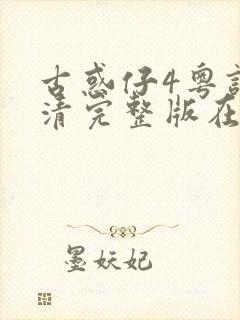 古惑仔4粤语
清完整版在
墨妖妃